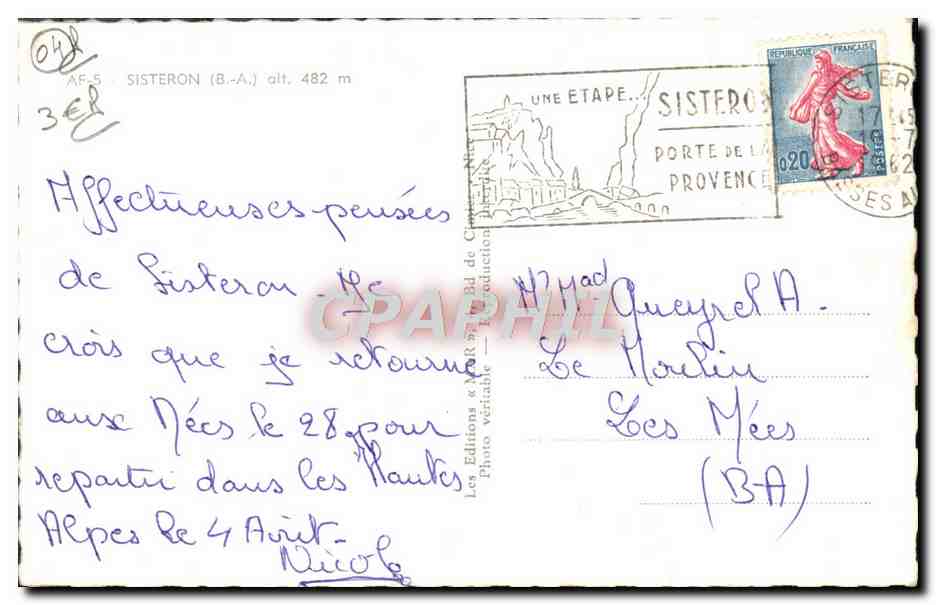 04
AF-5 - SISTERON (B.-A.) alt. 482 m
3 €
Affectueuses pensées
de Sisteron - Je
crois que je retourne
aux Mées le 28 pour
repartir dans les Hautes
Alpes le 4 Août -
Nicole
Les Editions « MAR », Bd de Nice
Photo véritable — Reproduction interdite
UNE ETAPE...
SISTERON
PORTE DE LA
PROVENCE
REPUBLIQUE FRANÇAISE
0,20
POSTES
SISTERON
17 45
7
62
BSES ALPES
Mr Mad Queyrel A.
Le Moulin
Les Mées
(B-A)
CPAPHIL